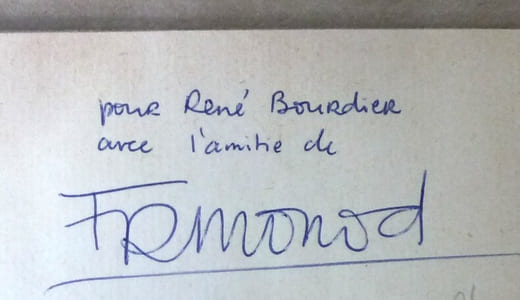 pour René Bourdier
avec l'amitié de
FRMONOD